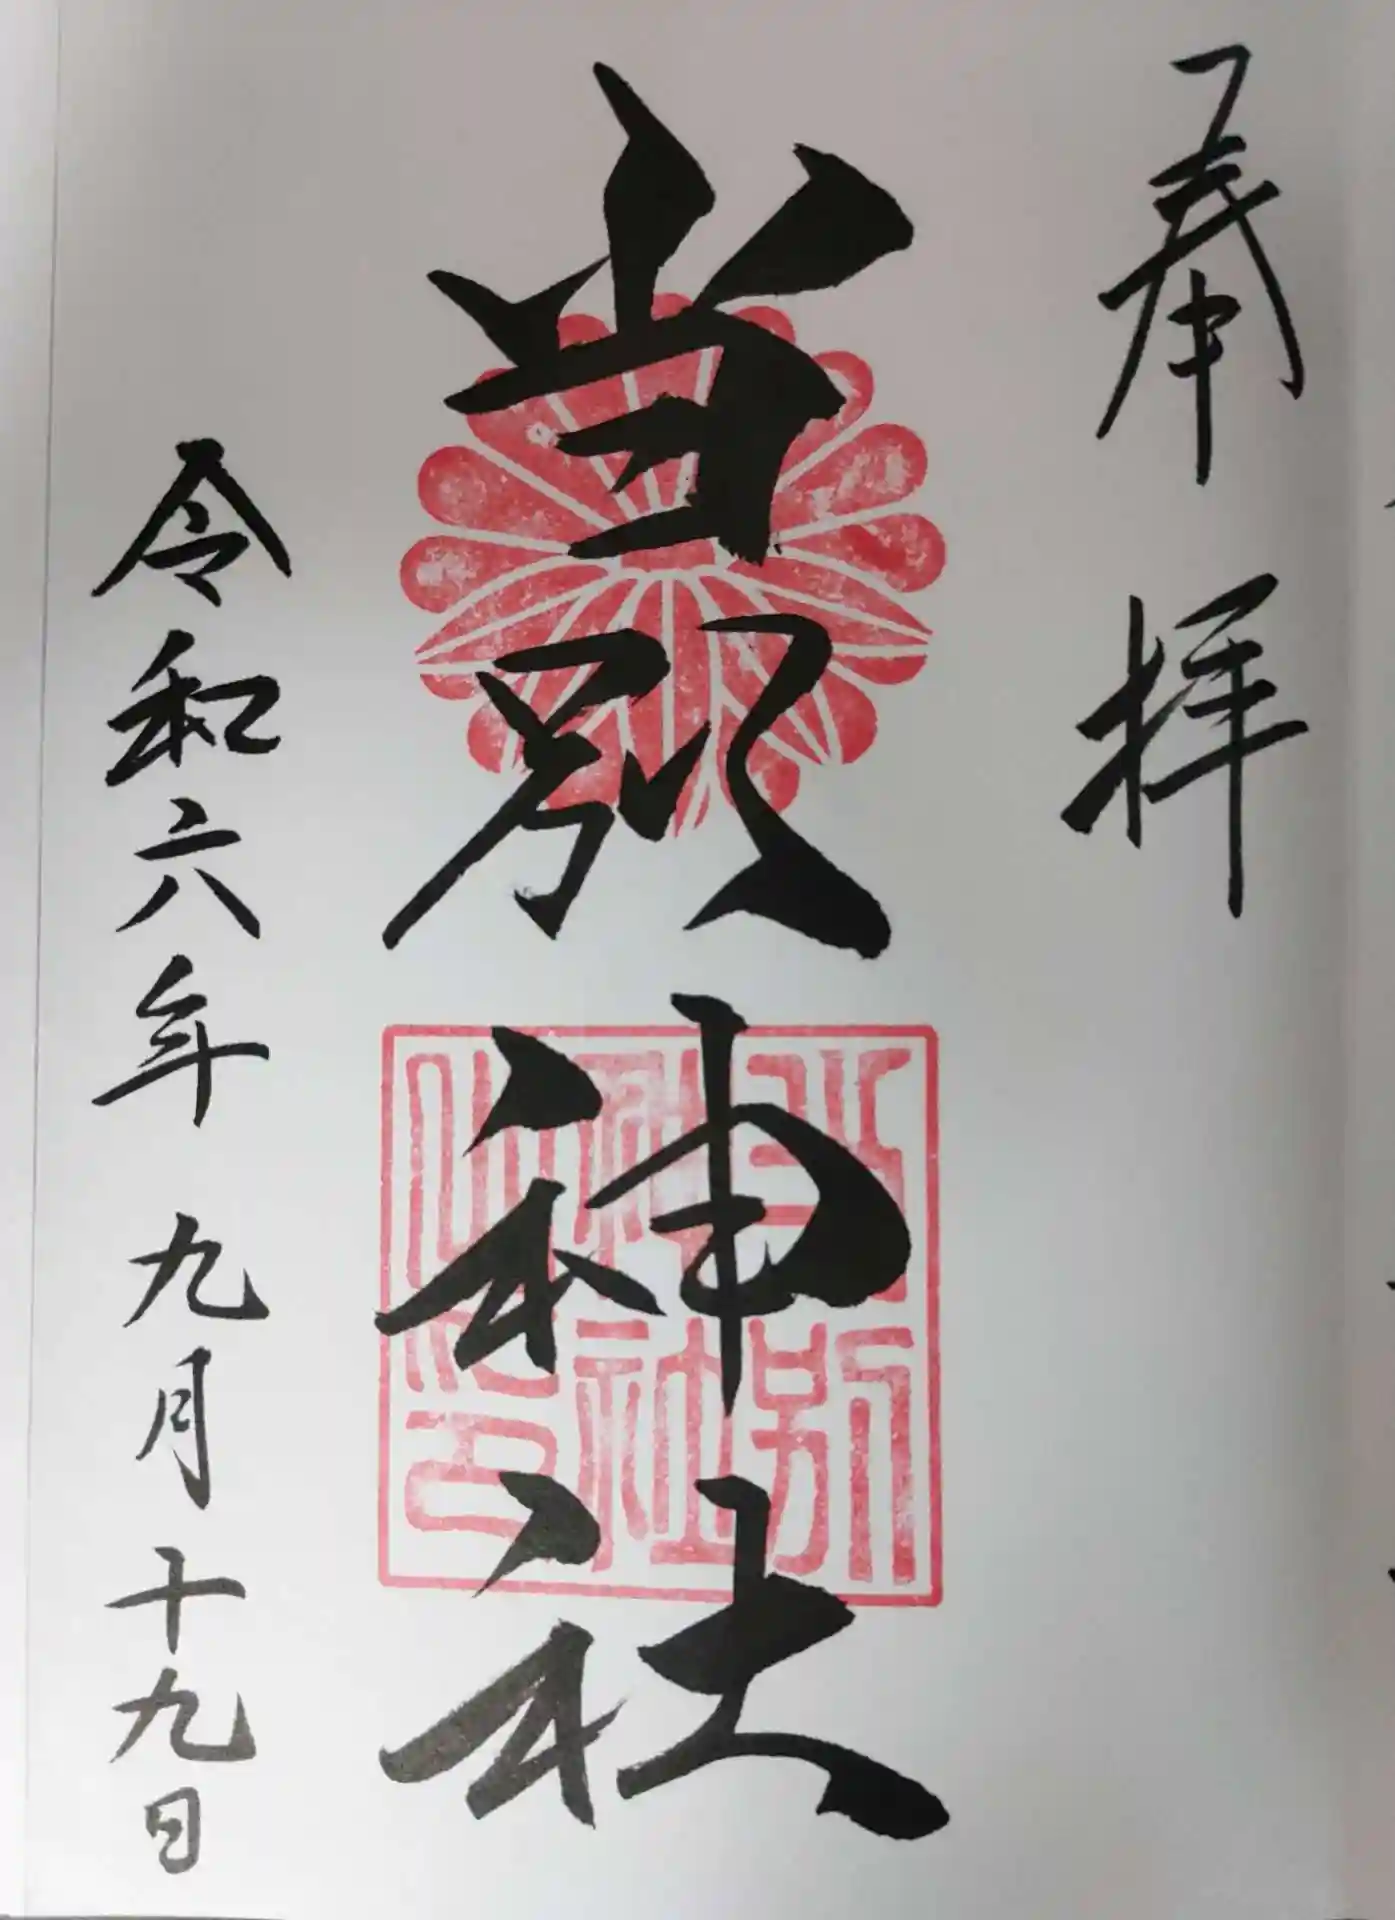 奉拝
当別神社
当別
神社
之印
令和六年九月十九日